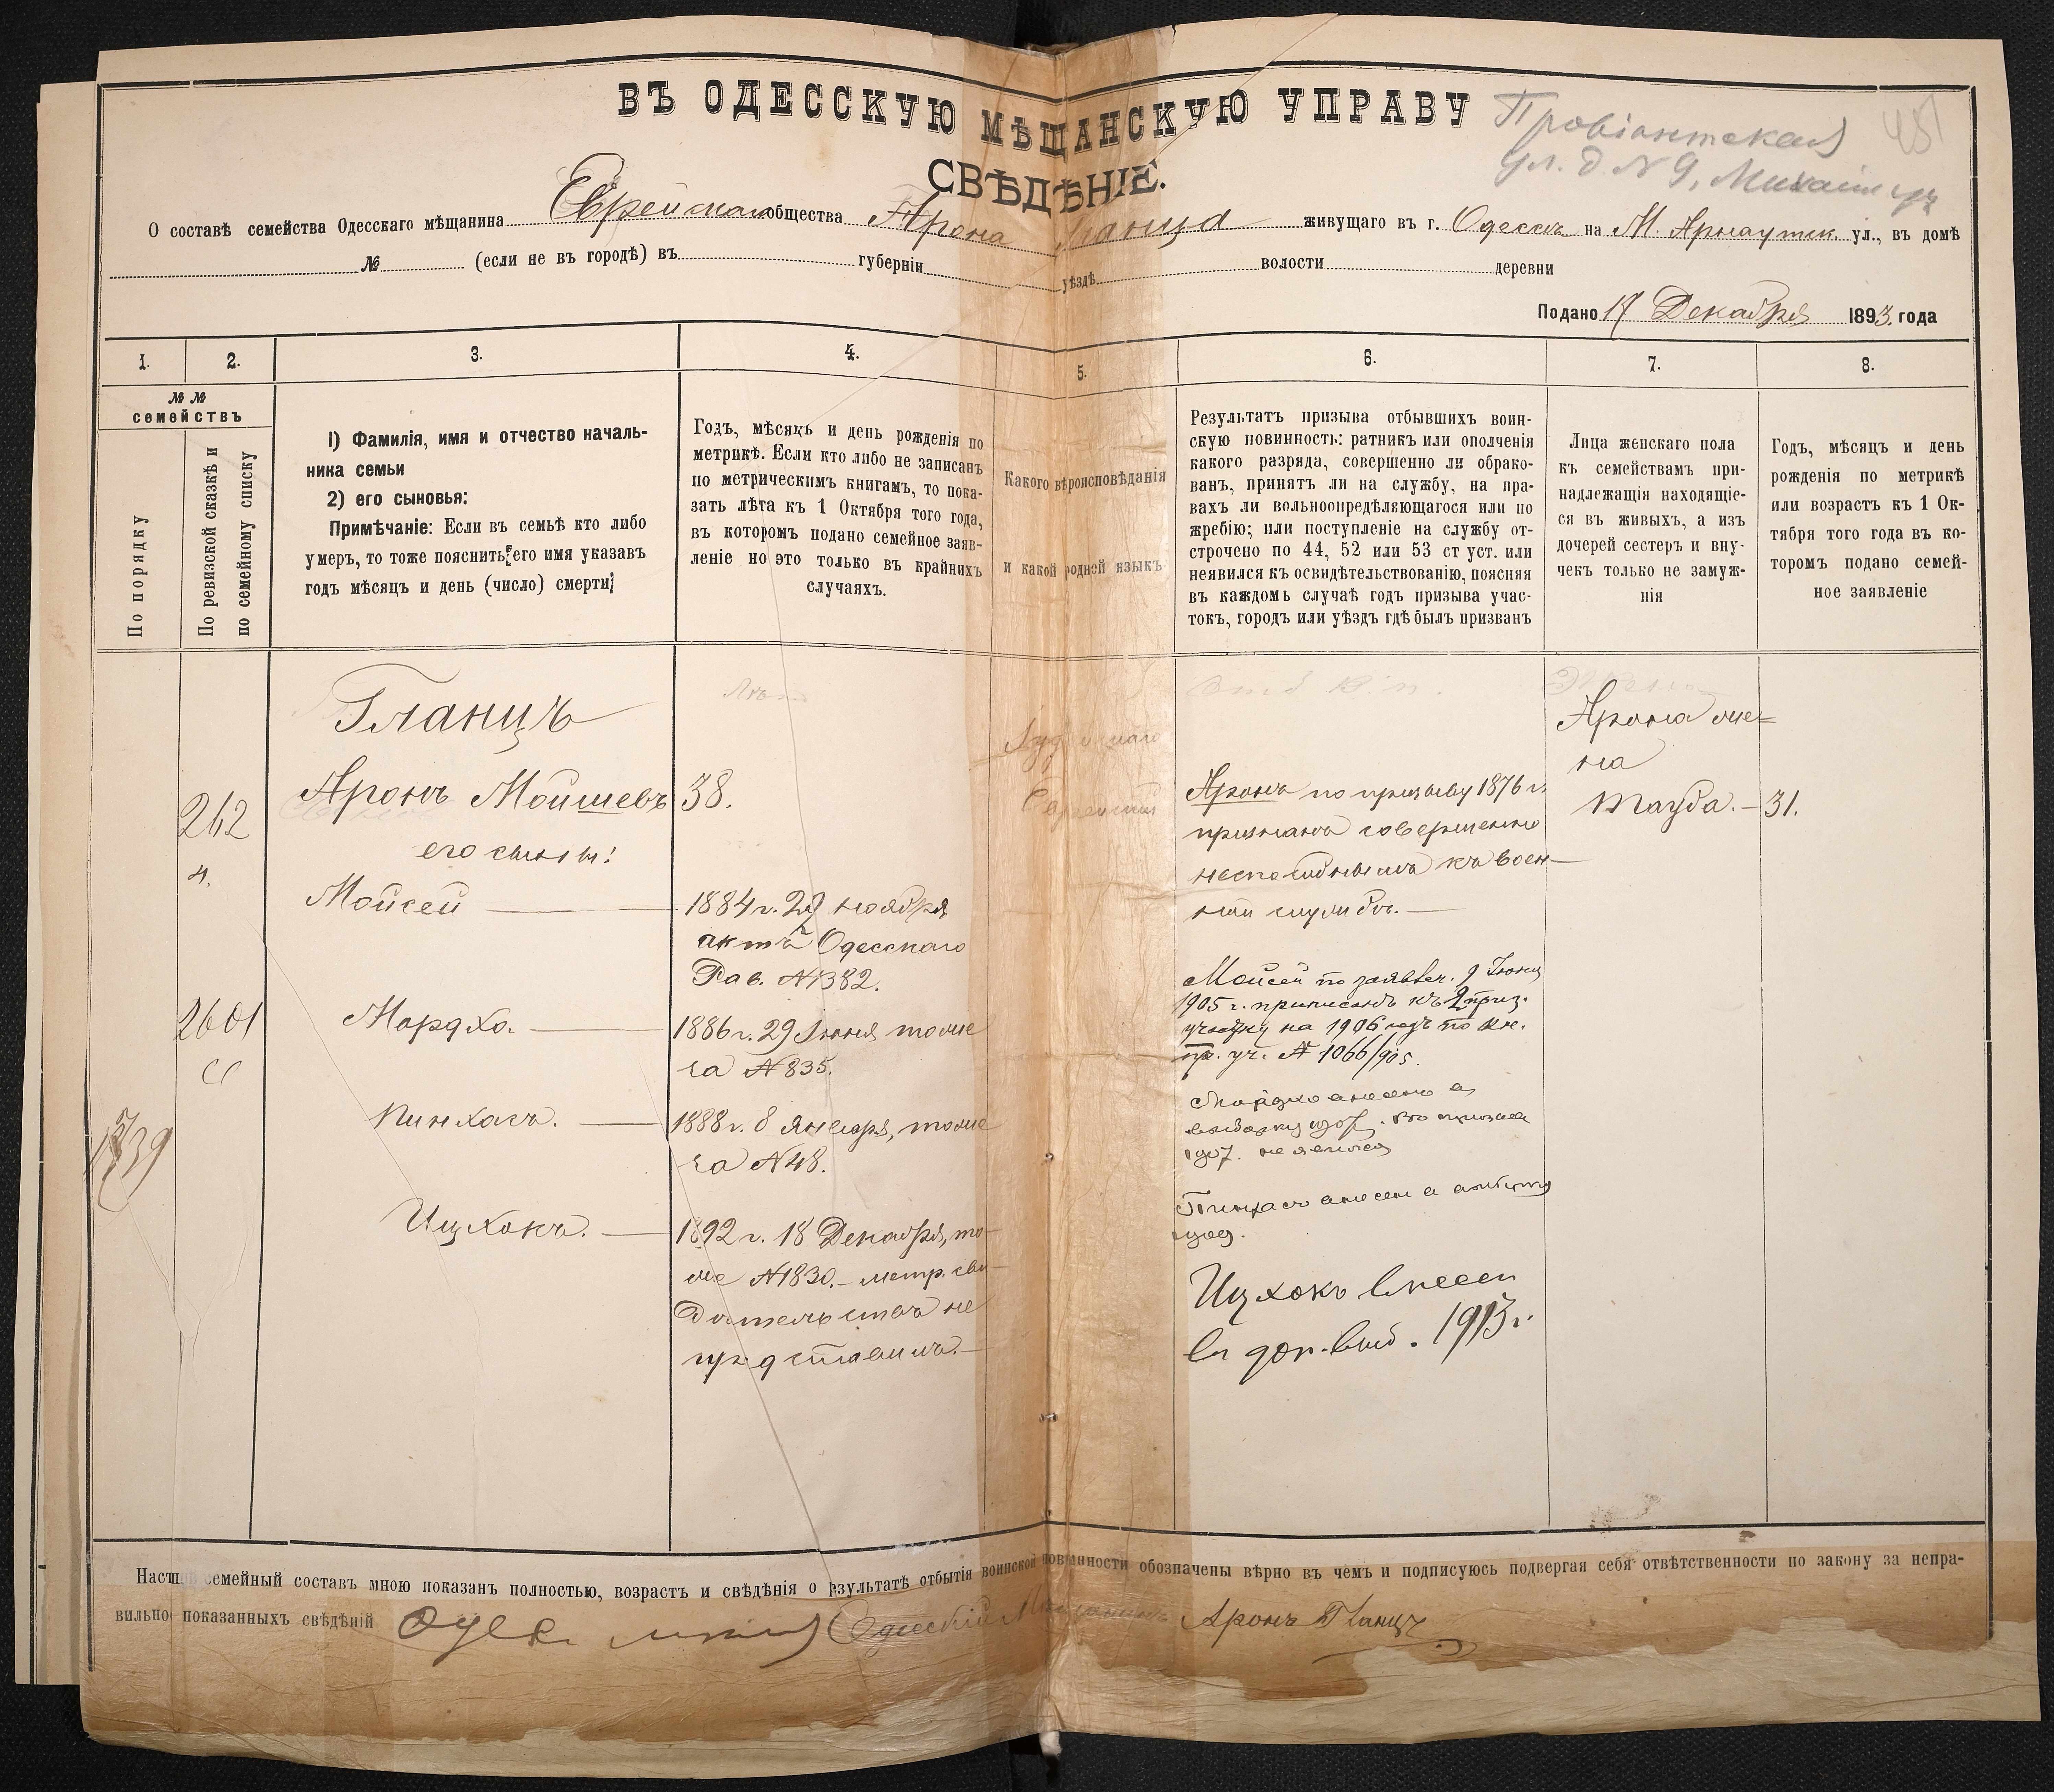 ВЪ ОДЕССКУЮ МѢЩАНСКУЮ УПРАВУ
Провіантская
ул. д. № 9,
СВѢДѢНІЕ.
О составѣ семейства Одесскаго мѣщанина Еврейскаго общества Арона Гланца живущаго въ г. Одессѣ на М. Арнаутск. ул., въ домѣ
№ (если не въ городѣ) въ губерніи уѣздѣ волости деревни
Подано 17 Декабря 1893 года
1. 2. 3. 4. 5. 6. 7. 8.
№ №
семействъ
По порядку
По ревизской сказкѣ и
по семейному списку
1) Фамилія, имя и отчество началь-
ника семьи
2) его сыновья:
Примѣчаніе: Если въ семьѣ кто либо
умеръ, то тоже пояснить его имя указавъ
годъ мѣсяцъ и день (число) смерти
Годъ, мѣсяцъ и день рожденія по
метрикѣ. Если кто либо не записанъ
по метрическимъ книгамъ, то пока-
зать лѣта къ 1 Октября того года,
въ которомъ подано семейное заяв-
леніе но это только въ крайнихъ
случаяхъ.
Какого вѣроисповѣданія
и какой родной языкъ
Результатъ призыва отбывшихъ воин-
скую повинность: ратникъ или ополченія
какого разряда, совершенно ли обрако-
ванъ, принятъ ли на службу, на пра-
вахъ ли вольноопредѣляющагося или по
жребію; или поступленіе на службу от-
строчено по 44, 52 или 53 ст уст. или
неявился къ освидѣтельствованію, поясняя
въ каждомъ случаѣ годъ призыва учас-
токъ, городъ или уѣздъ гдѣ былъ призванъ
Лица женскаго пола
къ семействамъ при-
надлежащія находящіе-
ся въ живыхъ, а изъ
дочерей сестеръ и вну-
чекъ только не замуж-
нія
Годъ, мѣсяцъ и день
рожденія по метрикѣ
или возрастъ къ 1 Ок-
тября того года въ ко-
торомъ подано семей-
ное заявленіе
262
2601
Гланцъ
Аронъ Мойшевъ
его сыны:
Мойсей
Мордхо.
Пинхасъ.
Ицхокъ.
Лѣта
38.
1884 г. 29 ноября
актъ Одесскаго
Рав. № 1382.
1886 г. 29 Іюня тоже
за № 835.
1888 г. 8 января, тоже
за № 48.
1892 г. 18 Декабря, то-
же № 1830.- метр. сви-
дѣтельства не
представилъ.-
Іудейскаго
Еврейскій
Отб. в. п.
Аронъ по призыву 1876 г.
признанъ совершенно
неспособнымъ къ воен-
ной службѣ.
Мойсей по заявлен. 9 Іюня
1905 г. приписанъ къ 2 приз.
участку на 1906 годъ по кн.
пр. уч. № 1066/905.
Мордхо внесенъ въ
1907. не явился
Пинхасъ внесен в
Ицхокъ внесен
въ доп. выб. 1913 г.
Арона же-
на
Тауба.- 31.
Настящ семейный составъ мною показанъ полностью, возрастъ и свѣдѣнія о рзультатѣ отбытія воинской повинности обозначены вѣрно въ чемъ и подписуюсь подвергая себя отвѣтственности по закону за непра-
вильно показанныхъ свѣдѣній Одесскій Мѣщанинъ Аронъ Гланцъ